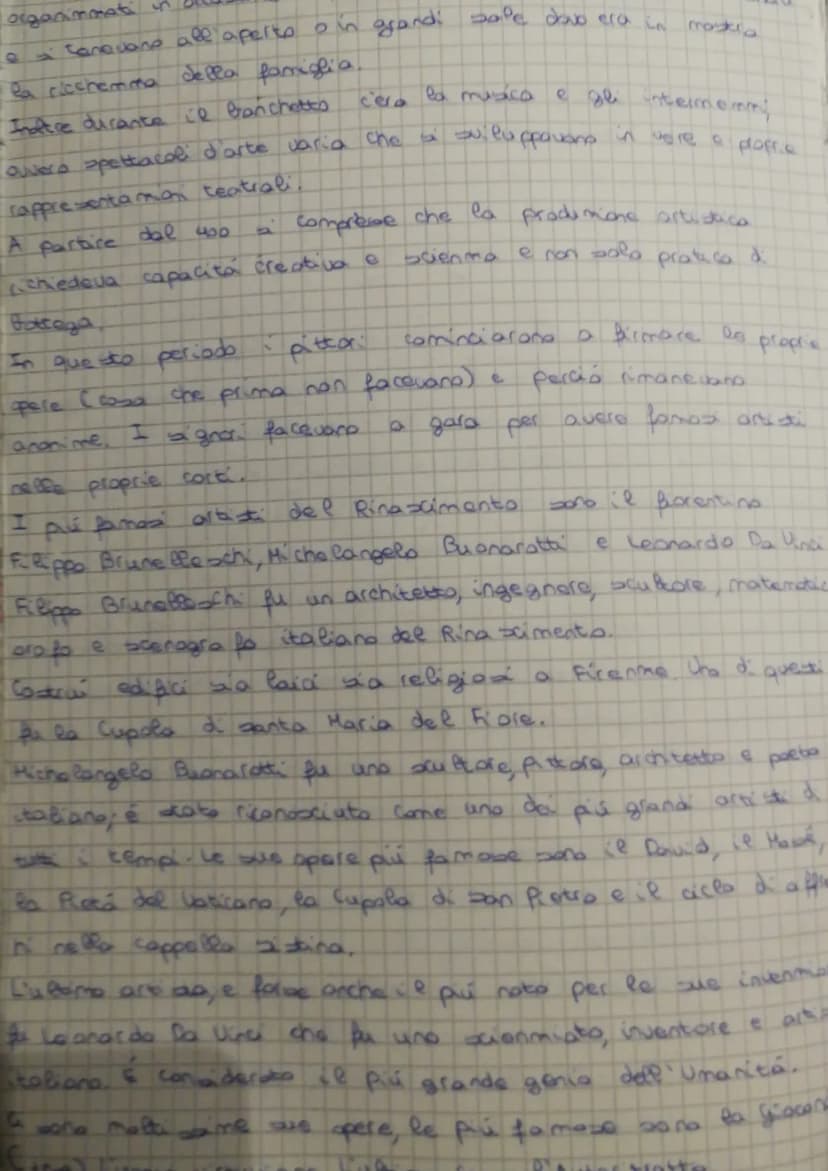 organizzati in
e si tenevano all'aperto o in grandi sale dove era in mostra
la ricchezza della famiglia.
Inoltre durante il banchetto c'era la musica e gli intermezzi,
ovvero spettacoli d'arte varia che si sviluppavano in vere e proprie
rappresentazioni teatrali.
A partire dal 400 si comprese che la produzione artistica
richiedeva capacità creativa e scienza e non solo pratica di
bottega.
In questo periodo i pittori cominciarono a firmare le proprie
opere (cosa che prima non facevano) e perciò rimanevano
anonime. I signori facevano a gara per avere famosi artisti
nelle proprie corti.
I più famosi artisti del Rinascimento sono il fiorentino
Filippo Brunelleschi, Michelangelo Buonarotti e Leonardo Da Vinci
Filippo Brunelleschi fu un architetto, ingegnere, scultore, matematic
orafo e scenografo italiano del Rinascimento.
Costruì edifici sia laici sia religiosi a Firenze. Uno di questi
fu la Cupola di Santa Maria del Fiore.
Michelangelo Buonarotti fu uno scultore, pittore, architetto e poeta
italiano; è stato riconosciuto come uno dei più grandi artisti di
tutti i tempi. Le sue opere più famose sono il David, il Mosè,
la Pietà del Vaticano, la Cupola di San Pietro e il ciclo di affre
ni nella cappella sistina.
L'ultimo artista, e forse anche il più noto per le sue invenzio
fu Leonardo Da Vinci che fu uno scienziato, inventore e artis
italiano. È considerato il più grande genio dell'Umanità.
sono moltissime sue opere, le più famose sono la Giocon